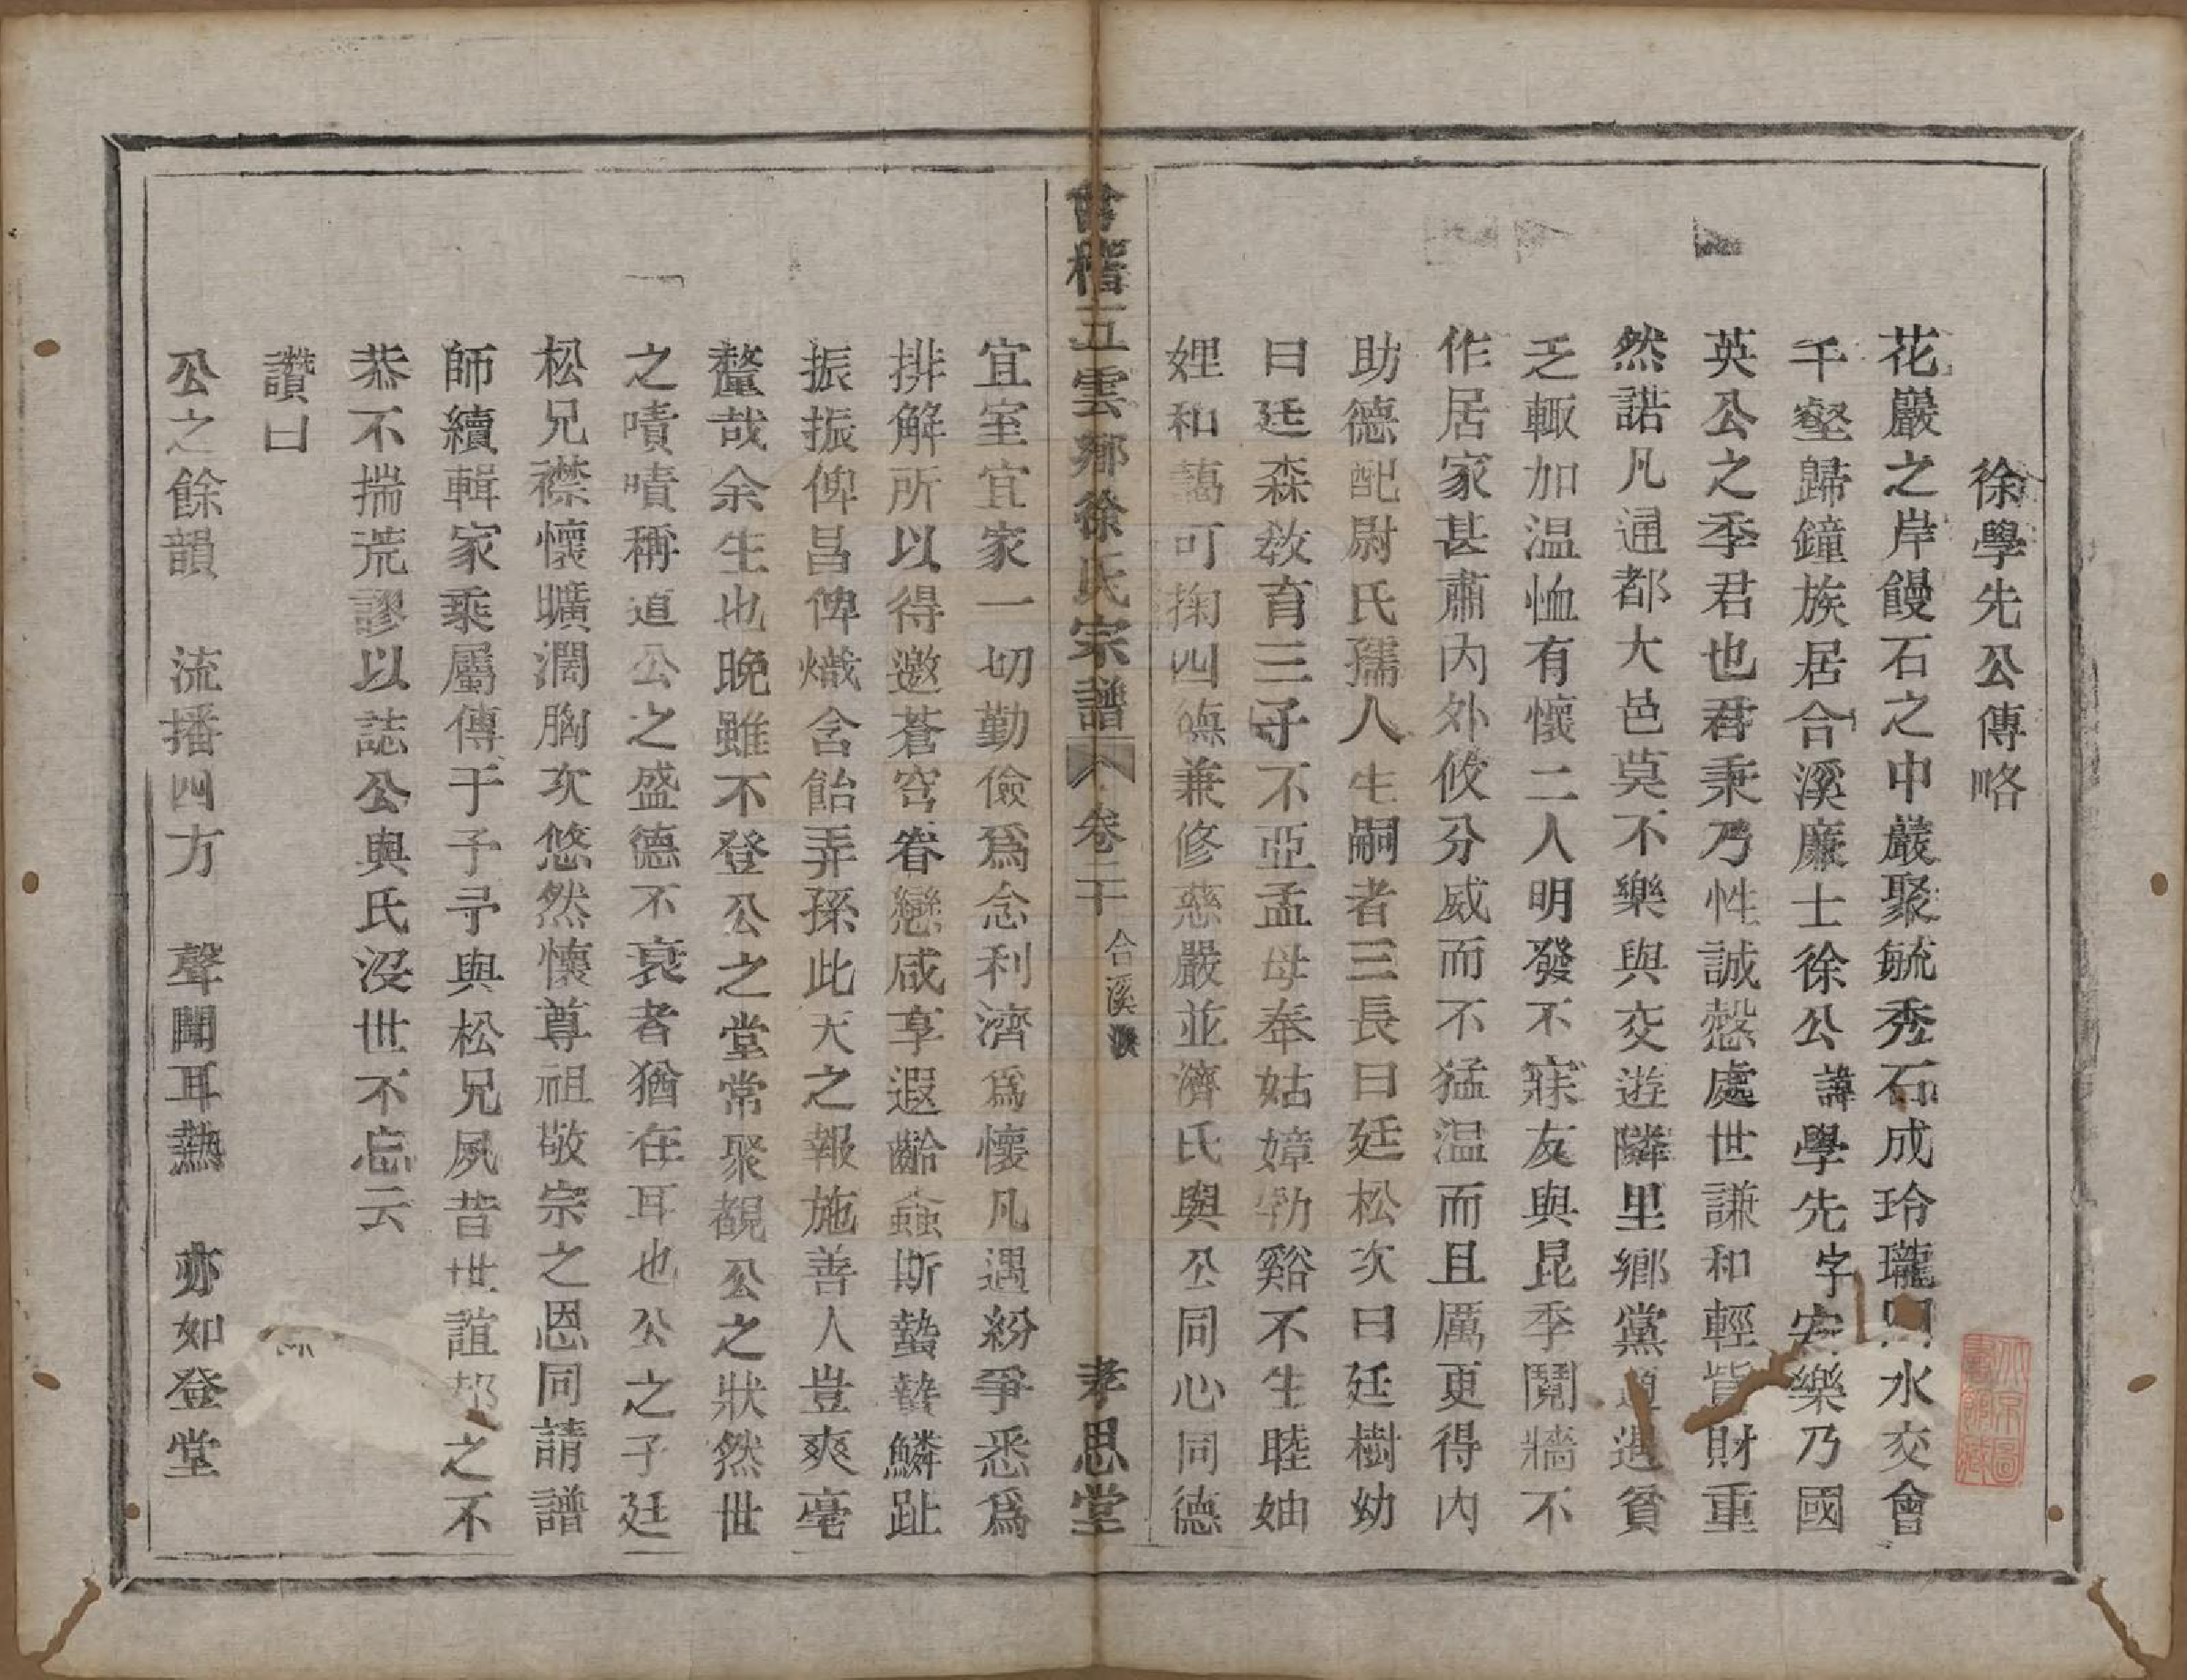 徐學先公傳略
花巖之岸饅石之中巖聚毓秀石成玲瓏水交會
千壑歸鐘族居合溪廉士徐公諱學先字宏樂乃國
英公之季君也君秉乃性誠慤處世謙和輕貲財重
然諾凡通都大邑莫不樂與交遊隣里鄉黨遇貧
乏輙加温恤有懷二人明發不寐友與昆季鬩牆不
作居家甚肅內外攸分威而不猛温而且厲更得內
助德配尉氏孺人生嗣者三長曰廷松次曰廷樹幼
曰廷森敎育三子不亞孟母奉姑嫜勃谿不生睦妯
娌和藹可掬四德兼修慈嚴並濟氏與公同心同德
會稽五雲鄉徐氏宗譜 卷二十 合溪派 孝思堂
宜室宜家一切勤儉爲念利濟爲懷凡遇紛爭悉爲
排解所以得邀蒼穹眷戀咸享遐齡螽斯蟄蟄鱗趾
振振俾昌俾熾含飴弄孫此天之報施善人豈爽毫
釐哉余生也晚雖不登公之堂常聚覩公之狀然世
之嘖嘖稱道公之盛德不衰者猶在耳也公之子廷
松兄襟懷曠濶胸次悠然懷尊祖敬宗之恩同請譜
師續輯家乘屬傳于予予與松兄夙昔世誼却之不
恭不揣荒謬以誌公與氏沒世不忘云
讚曰
公之餘韻 流播四方 聲聞耳熱 亦如登堂